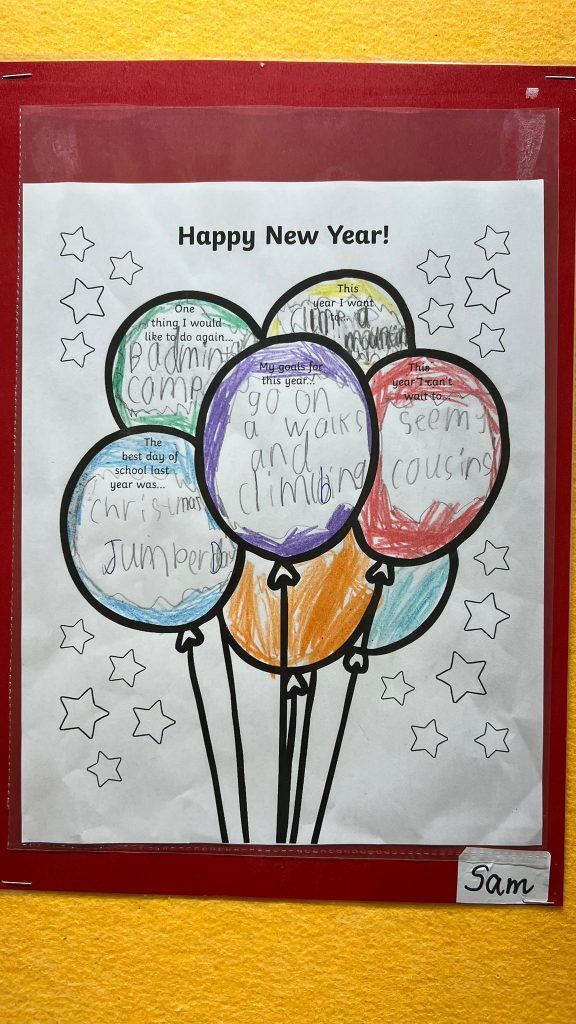 Happy New Year!
One
thing I would
like to do again...
Badmint
camp
This
year I want
to...
climb a
mountain
My goals for
this year...
go on
a walks
and
climbing
This
year I can't
wait to...
seemy
cousins
The
best day of
school last
year was...
christmas
Jumper Day
Sam